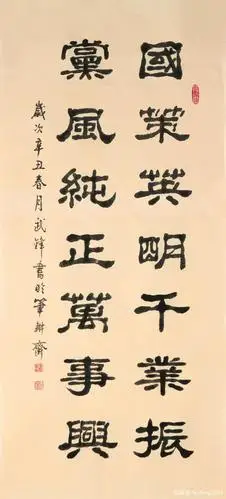 國策英明千業振
黨風純正萬事興
歲次辛丑春月武鋒書於筆耕齋